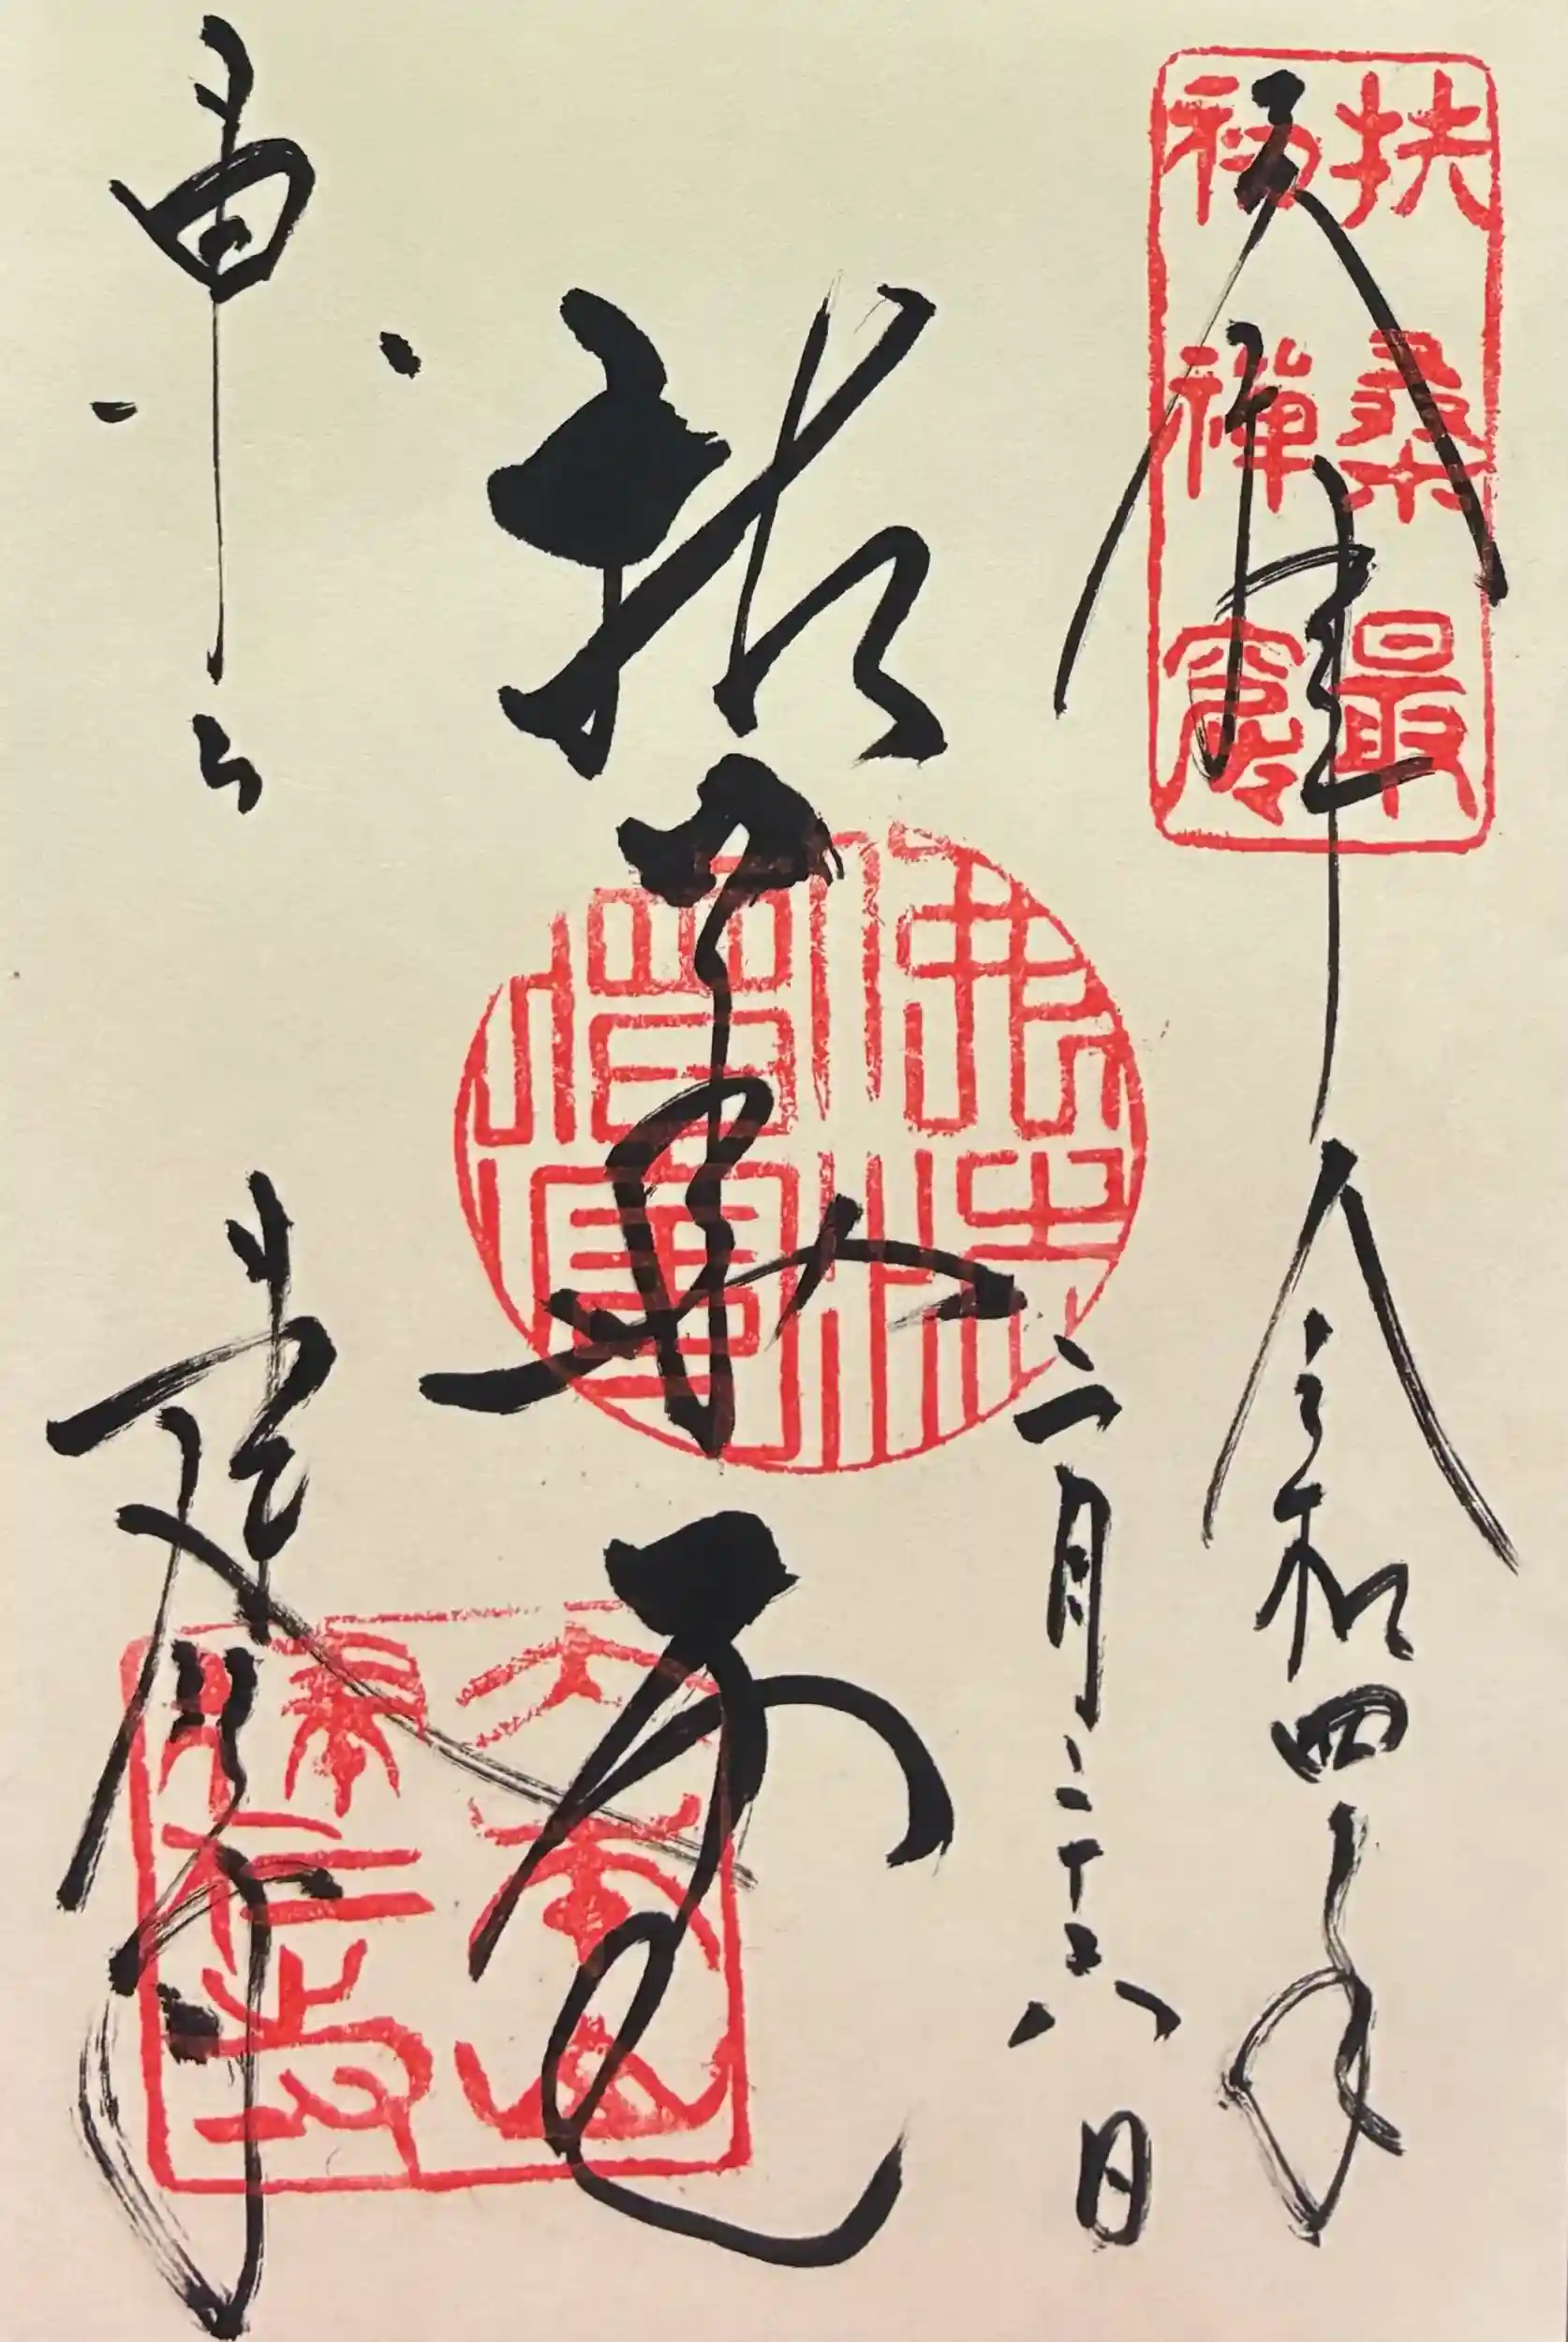 扶桑最
初禪窟
奉拝
令和四年
二月二十六日
拈華堂
佛法
僧寶
東山
建仁寺